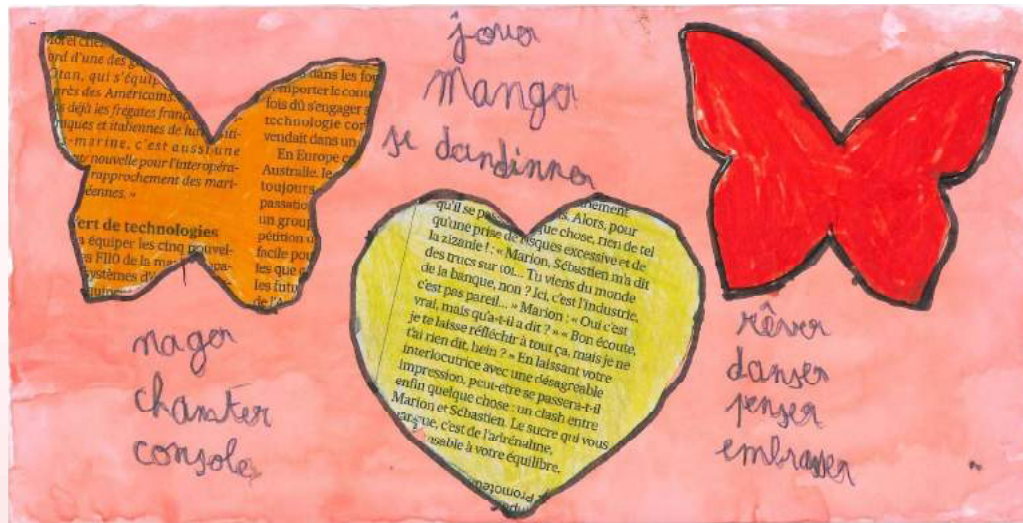 jouer
Manger
se dandinner
ord d'une des
Otan, qui s'équip
près des Américains.
déjà les frégates franç
et italiennes de lutte
-marine, c'est aussi une
nouvelle pour l'interopéra-
rapprochement des mari-
éennes. »
ert de technologies
équiper les cinq nouvel-
FIIO de la
systèmes
dans les fou
emporter le cont
fois dû s'engager a
technologie con
vendait dans un
En Europe
Australie, le
toujours
passatio
un group
pétition
facile pou
les que
les futu
qu'il se
Alors, pour
que chose, rien de tel
qu'une prise de risques excessive et de
la zizanie ! : « Marion, Sébastien m'a dit
des trucs sur toi... Tu viens du monde
de la banque, non ? Ici, c'est l'industrie,
c'est pas pareil... » Marion : « Oui c'est
vrai, mais qu'a-t-il a dit ? » « Bon écoute,
je te laisse réfléchir à tout ça, mais je ne
t'ai rien dit, hein ? » En laissant votre
interlocutrice avec une désagréable
impression, peut-être se passera-t-il
enfin quelque chose : un clash entre
Marion et Sébastien. Le sucre qui vous
c'est de l'adrénaline,
à votre équilibre.
Promoteu
nager
chanter
consoler
rêver
danser
penser
embrasser